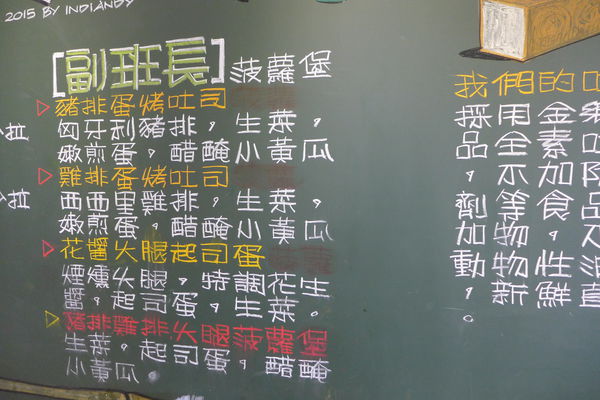 2015 BY INDIANDY
[副班長]菠蘿堡
豬排蛋烤吐司
匈牙利豬排，生菜，
嫩煎蛋，醋醃小黃瓜
雞排蛋烤吐司
西西里雞排，生菜，
嫩煎蛋，醋醃小黃瓜
花醬火腿起司蛋
煙燻火腿，特調花生
醬，起司蛋，生菜。
豬排雞排火腿菠蘿堡
生菜，起司蛋，醋醃
小黃瓜。
拉
拉
我們的吐
採用金
品全素
，不加
劑等食品
加物，
動物性油
，新鮮直
。